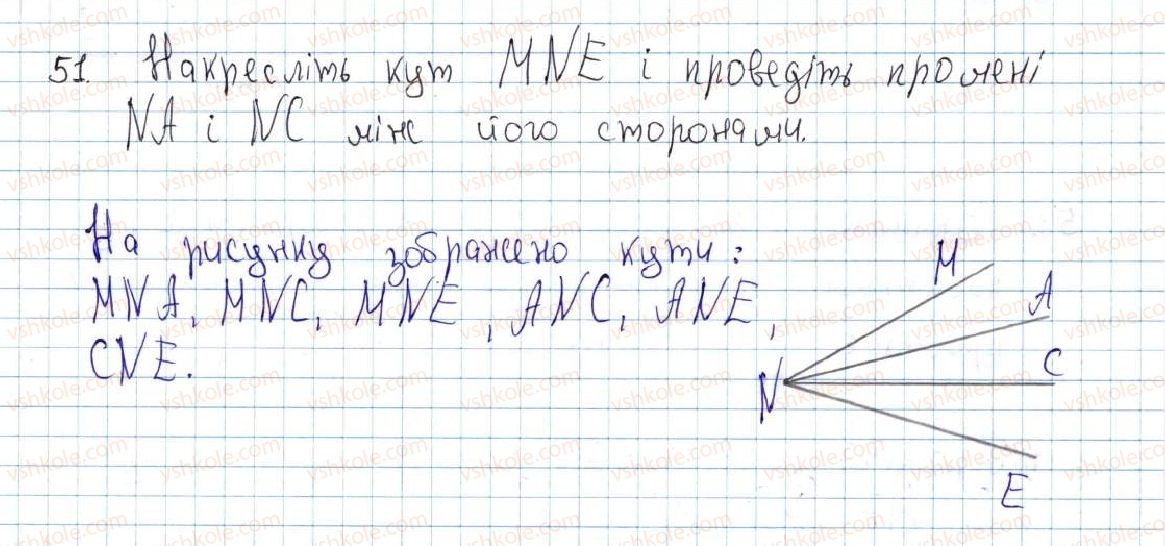 51. Накресліть кут MNE і проведіть промені
NA і NC між його сторонами.
На рисунку зображено кути:
MNA, MNC, MNE, ANC, ANE,
CNE.
M
A
C
N
E
vshkole.com